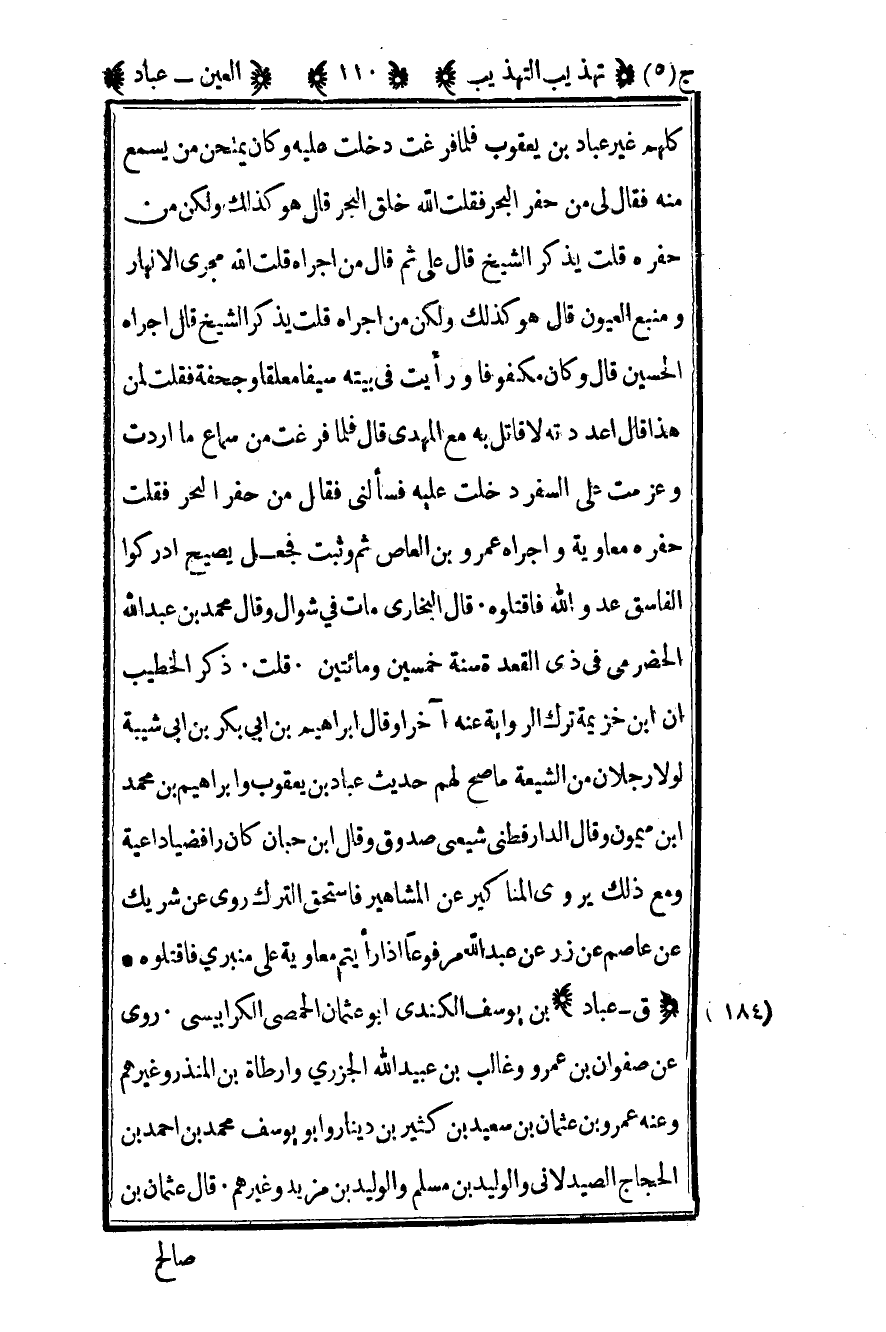 ج (٥) تهذيب التهذيب ١١٠ العين ــ عباد
كلهم غير عباد بن يعقوب فلما فرغت دخلت عليه وكان يمتحن من يسمع
منه فقال لى من حفر البحر فقلت الله خلق البحر قال هو كذلك ولكن من
حفره قلت يذكر الشيخ قال على ثم قال من اجراه قلت الله مجرى الانهار
و منبع العيون قال هو كذلك ولكن من اجراه قلت يذكر الشيخ قال اجراه
الحسين قال وكان مكفوفا و رأيت فى بيته سيفا معلقا وحجفة فقلت لمن
هذا قال اعددته لاقاتل به مع المهدى قال فلما فرغت من سماع ما اردت
وعزمت على السفر دخلت عليه فسألنى فقال من حفر البحر فقلت
حفره معاوية و اجراه عمرو بن العاص ثم وثبت فجعل يصيح ادركوا
الفاسق عدو الله فاقتلوه ٠ قال البخارى مات في شوال وقال محمد بن عبدالله
الحضرمى فى ذى القعدة سنة خمسين ومائتين ٠ قلت ٠ ذكر الخطيب
ان ابن خزيمة ترك الرواية عنه آخرا وقال ابراهيم بن ابي بكر بن ابى شيبة
لولا رجلان من الشيعة ما صح لهم حديث عباد بن يعقوب وابراهيم بن محمد
ابن ميمون وقال الدارقطنى شيعى صدوق وقال ابن حبان كان رافضيا داعية
ومع ذلك يروى المناكير عن المشاهير فاستحق الترك روى عن شريك
عن عاصم عن زر عن عبدالله مرفوعاً اذا رأيتم معاوية على منبري فاقتلوه •
(١٨٤) ق ــ عباد بن يوسف الكندى ابو عثمان الحمصى الكرابيسى ٠ روى
عن صفوان بن عمرو وغالب بن عبيدالله الجزري وارطاة بن المنذر وغيرهم
وعنه عمرو بن عثمان بن سعيد بن كثير بن دينار وابو يوسف محمد بن احمد بن
الحجاج الصيدلانى والوليد بن مسلم والوليد بن مزيد وغيرهم ٠ قال عثمان بن
صالح